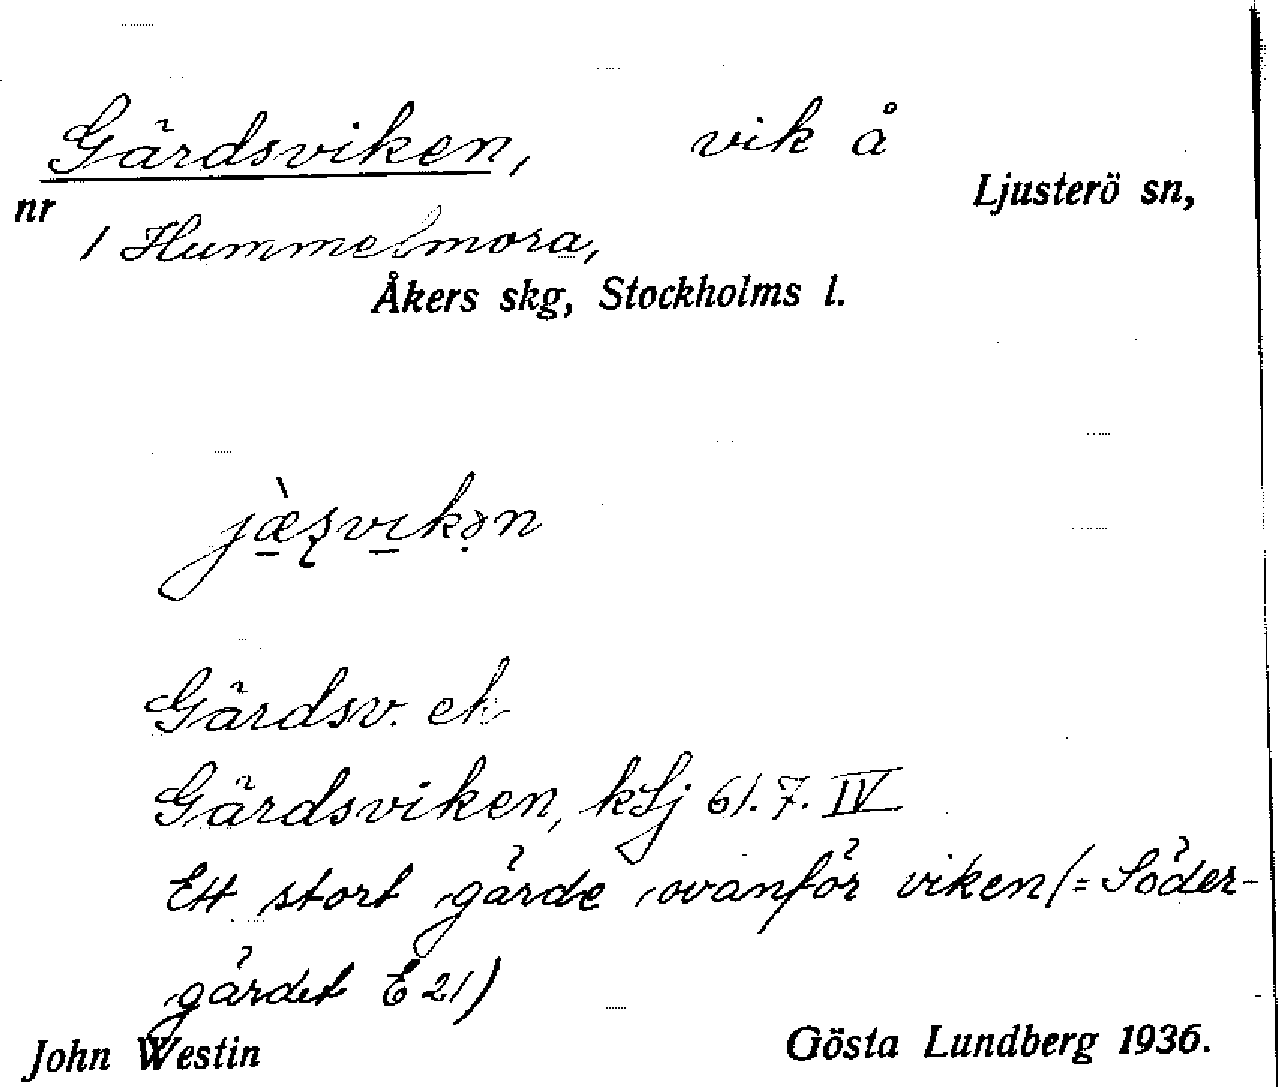 Gärdsviken, vik å
Ljusterö sn,
nr
1 Hummelmora,
Åkers skg, Stockholms l.
jæ̀ʂvikən
Gärdsv. ek
Gärdsviken, kLj 61.7.IV
Ett stort gärde ovanför viken (= Söder-
gärdet E 21)
John Westin Gösta Lundberg 1936.